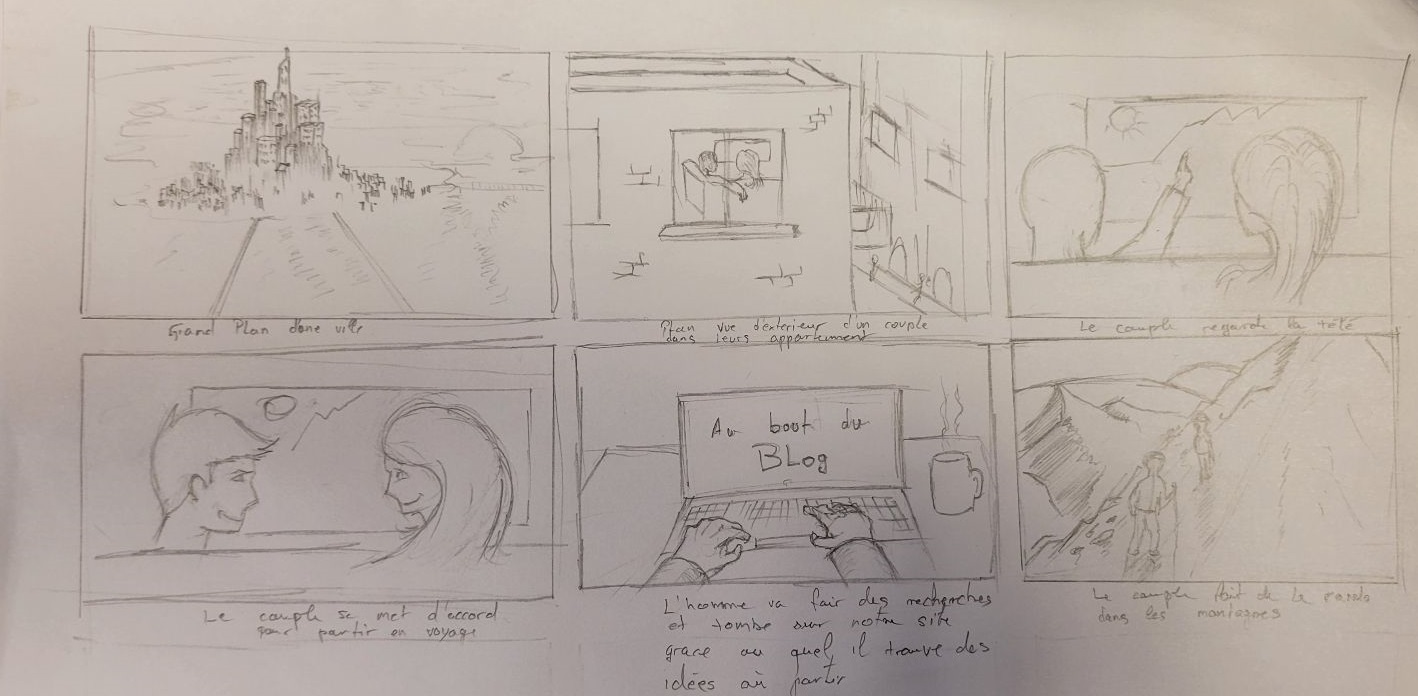 Grand Plan d'une ville
Plan vue d'exterieur d'un couple
dans leurs appartement
Le couple regarde la télé
Le couple se met d'accord
pour partir en voyage
Au bout du
BLog
L'homme va fair des recherches
et tombe sur notre site
grace au quel il trouve des
idées où partir
Le couple fait de la rando
dans les montagnes